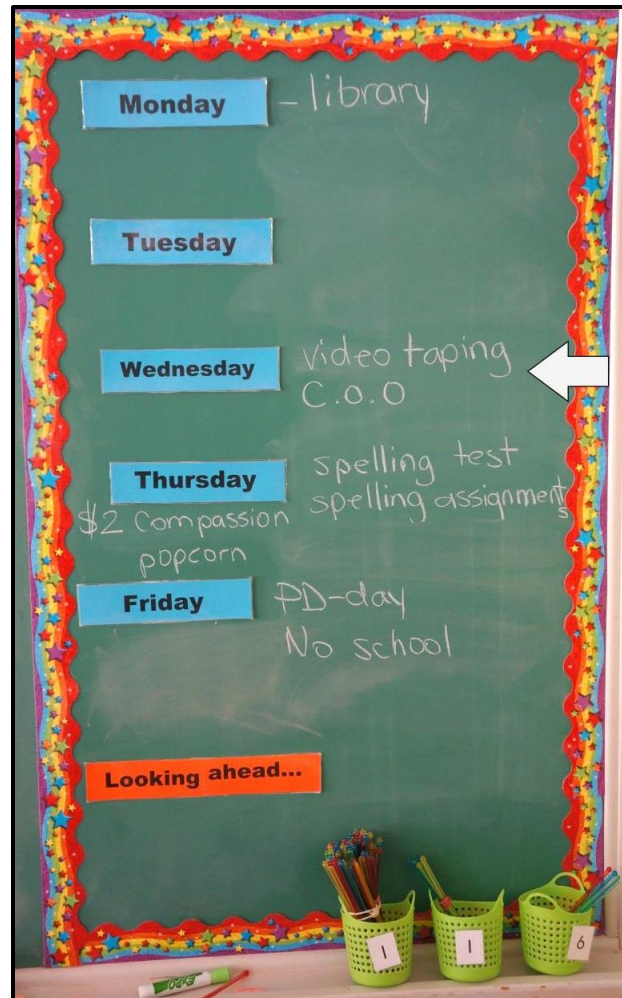 Monday - library
Tuesday
Wednesday video taping
C.O.O
Thursday spelling test
spelling assignments
$2 Compassion
popcorn
Friday PD-day
No school
Looking ahead...
EXPO
1 1 6